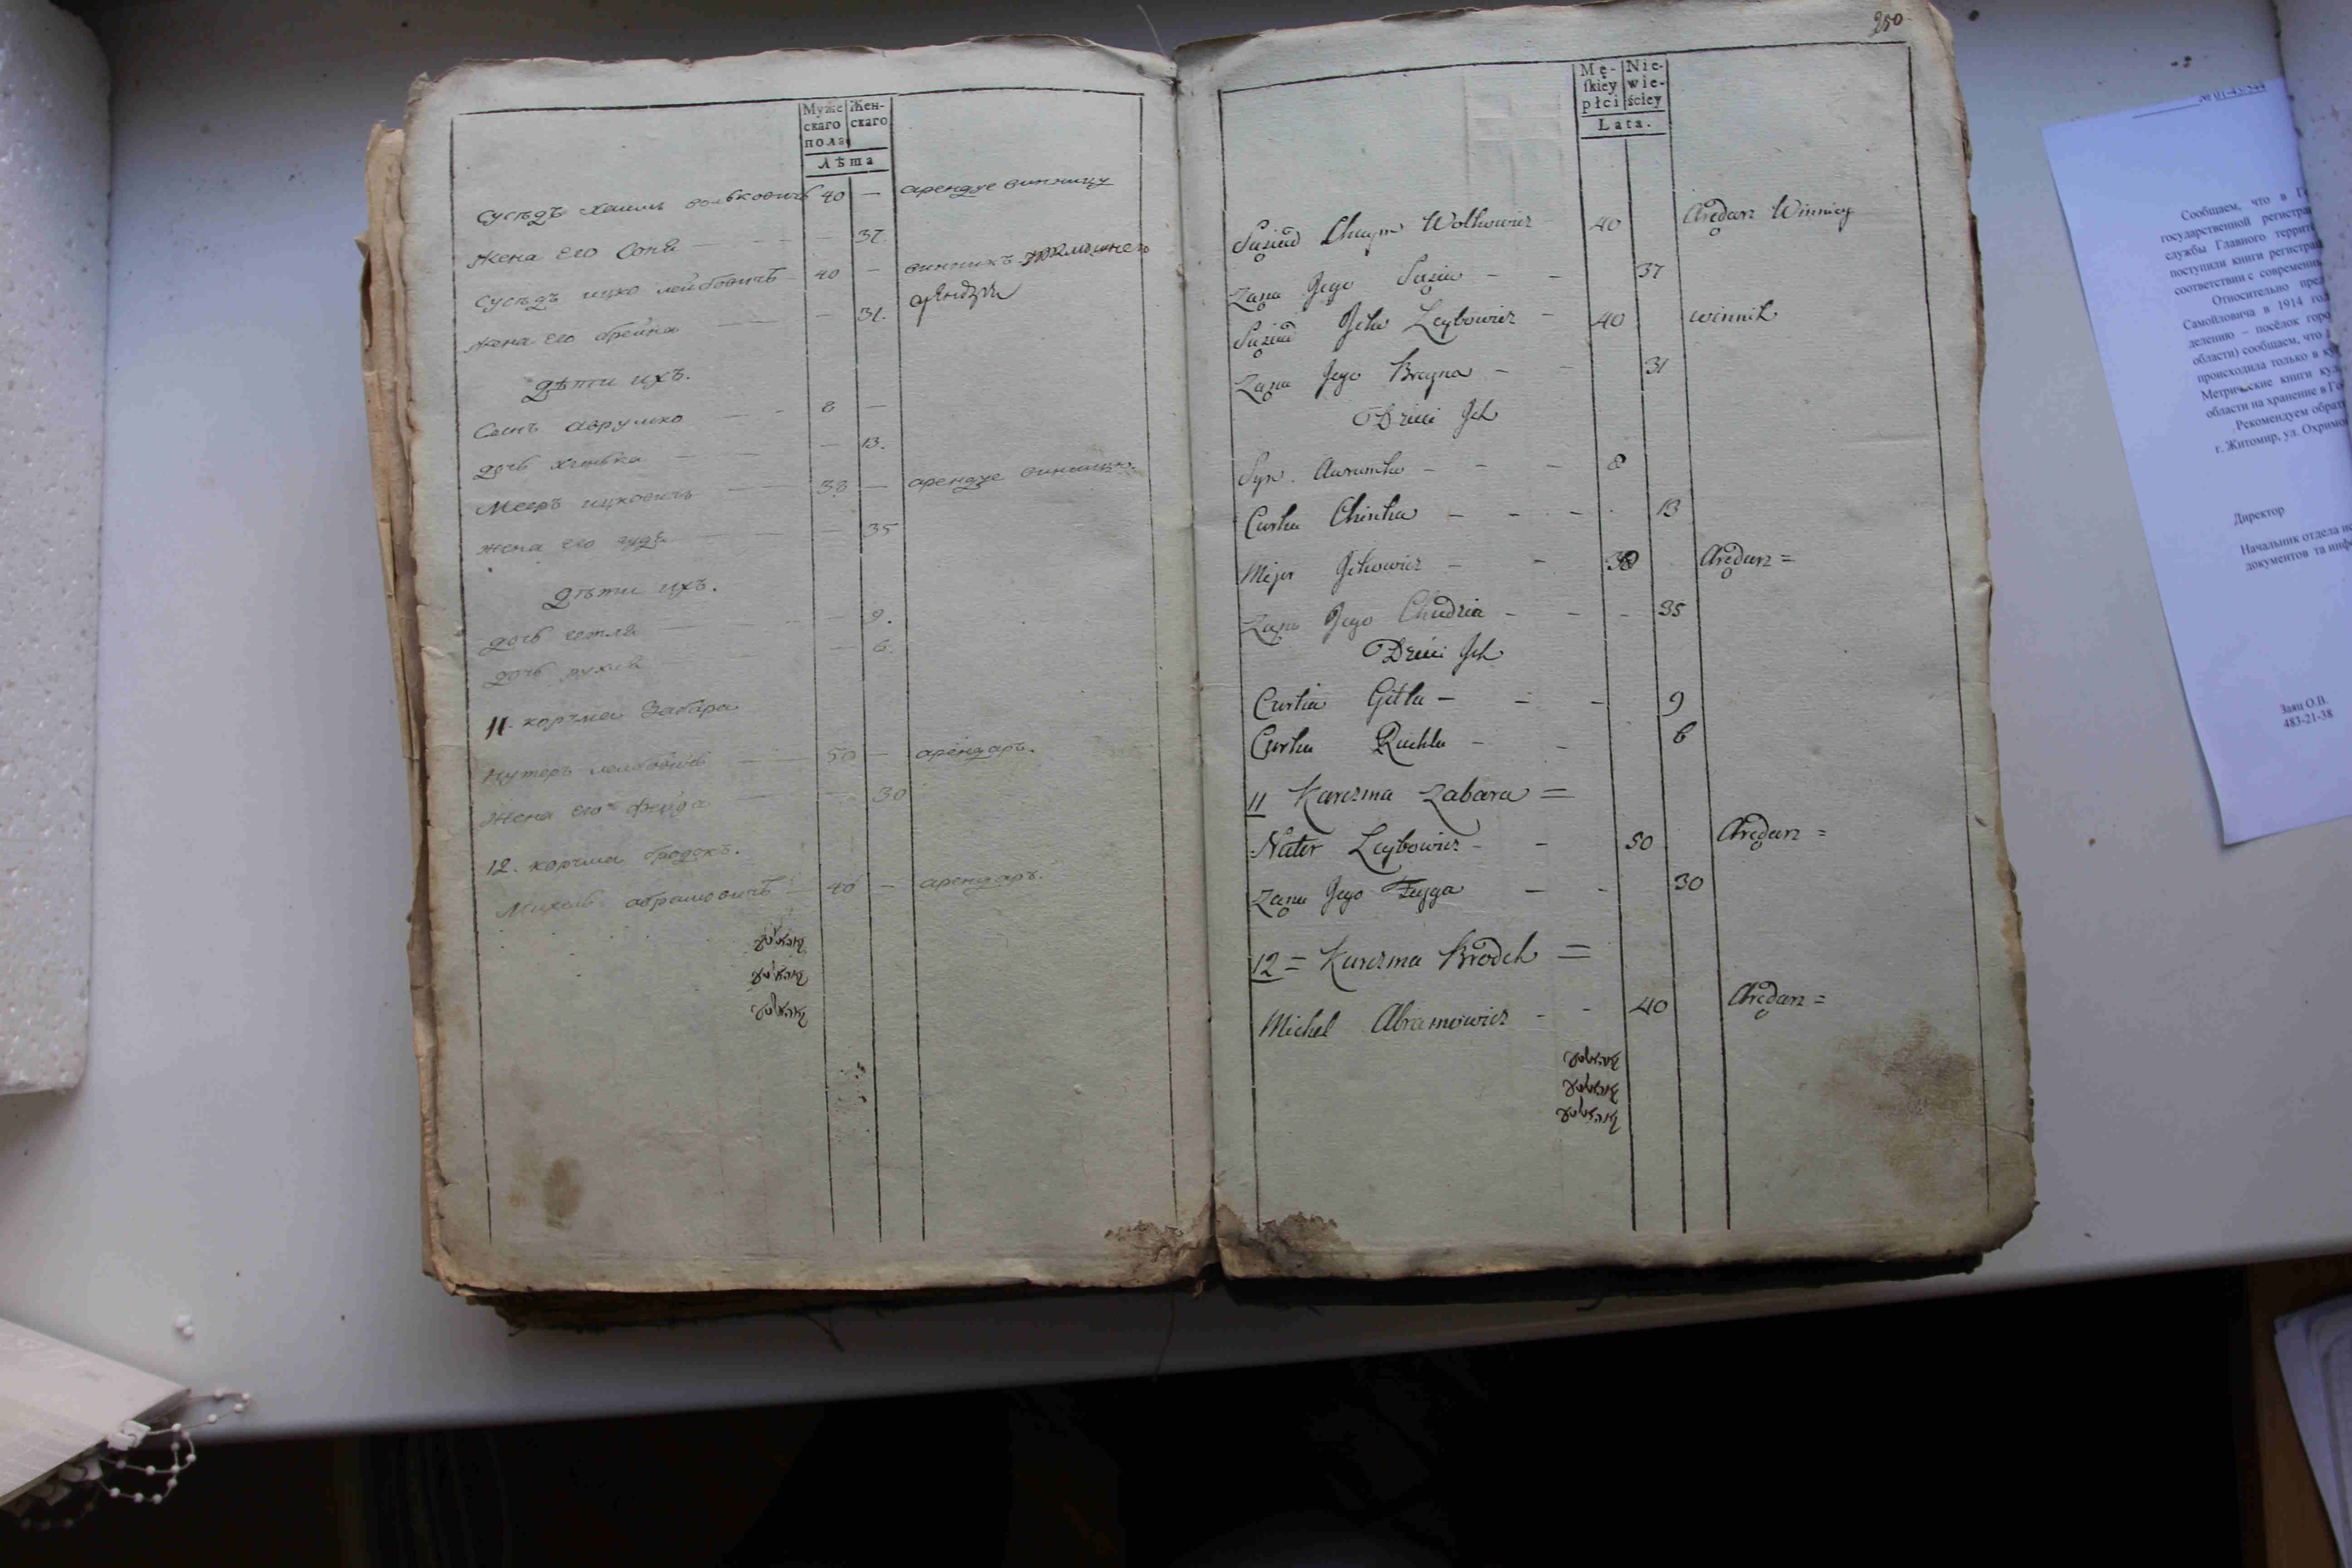 Муже
скаго
пола
Жен-
скаго
лѣта
Сусѣдъ хаимъ вольковичъ 40 — арендуе винницу
Жена его Соня — — — 37.
Сусѣдъ ицко лейбовичъ — 40 — винникъ
жена его брейна — — 31.
дѣти ихъ.
Сынъ аврумко — — 8 —
дочь хинька — — — 13.
Меѣръ ицковичъ — 38 — арендуе винницю.
жена его худя — — — 35
дѣти ихъ.
дочь гитля — — — 9.
дочь рухля — — — 6.
11. корчма Забара
Нутеръ лейбовичъ — — 50 — арендаръ.
Жена его фейга — — 30
12. корчма бродокъ.
Михель абрамовичъ — 40 — арендаръ.
250
Mę-
skiey
płci
Nie-
wie-
ściey
Lata.
Sąsiad Chaym Wolkowicz 40 Arędarz Winnicy
Żona Jego Sosia — — 37
Sąsiad Jcko Leybowicz — 40 winnik
Żona Jego Breyna — — 31
Dzieci Jch
Syn. Awrumko — — — 8
Curka Chinka — — — 13
Mejer Jckowicz — — 38 Arędarz =
Żona Jego Chudzia — — — 35
Dzieci Jch
Curka Gitla — — — 9
Curka Ruchla — — 6
11 Karczma Zabara =
Nuter Leybowicz — — 50 Arędarz =
Żona Jego Feyga — — 30
12 = Karczma Brodek =
Michel Abramowicz — — 40 Arędarz =
№ 01-43/244
Сообщаем, что в
государственной
службы Главного
поступили книги
соответствии с
Относительно
Самойловича в 1914
делению – посёлок
области) сообщаем, что
происходила только в
Метрические книги
области на хранение в
Рекомендуем
г. Житомир, ул.
Директор
Начальник отдела
документов та
Заяц О.В.
483-21-38